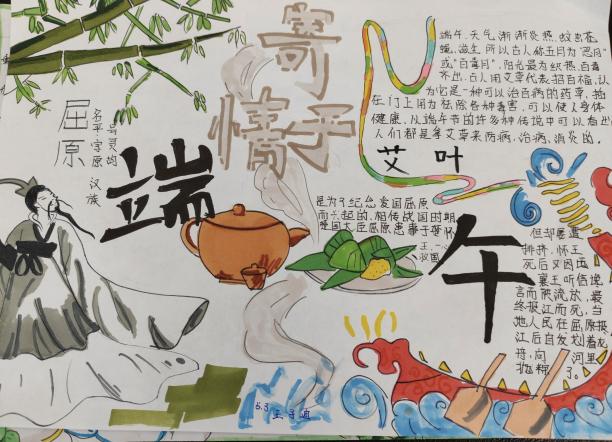 寄
情于
端
午
屈
原
名平,字原
号灵均
汉族
端午,天气渐渐炎热,蚊虫苍
蝇滋生,所以古人称五月为"恶月"
或"百毒月",阳光最为炽热,百毒
不出,古人用艾草代表招百福,认
为它是一种可以治百病的药草,插
在门上用为祛除各种毒害,可以使人身体
健康,从端午节的许多种传说中可以看出
人们都是拿艾草来防病,治病,消炎的。
艾叶
是为了纪念爱国屈原
而兴起的,相传战国时期,
楚国大臣屈原患妻于楚怀
王,一心
败国
但却屡遭
排挤,怀王
死后又因顷
襄王听信谗
言而被流放,最
终投江而死,当
地人民在屈原投
江后自发划着龙
舟,向河里
抛粽了。
6.3 王子道